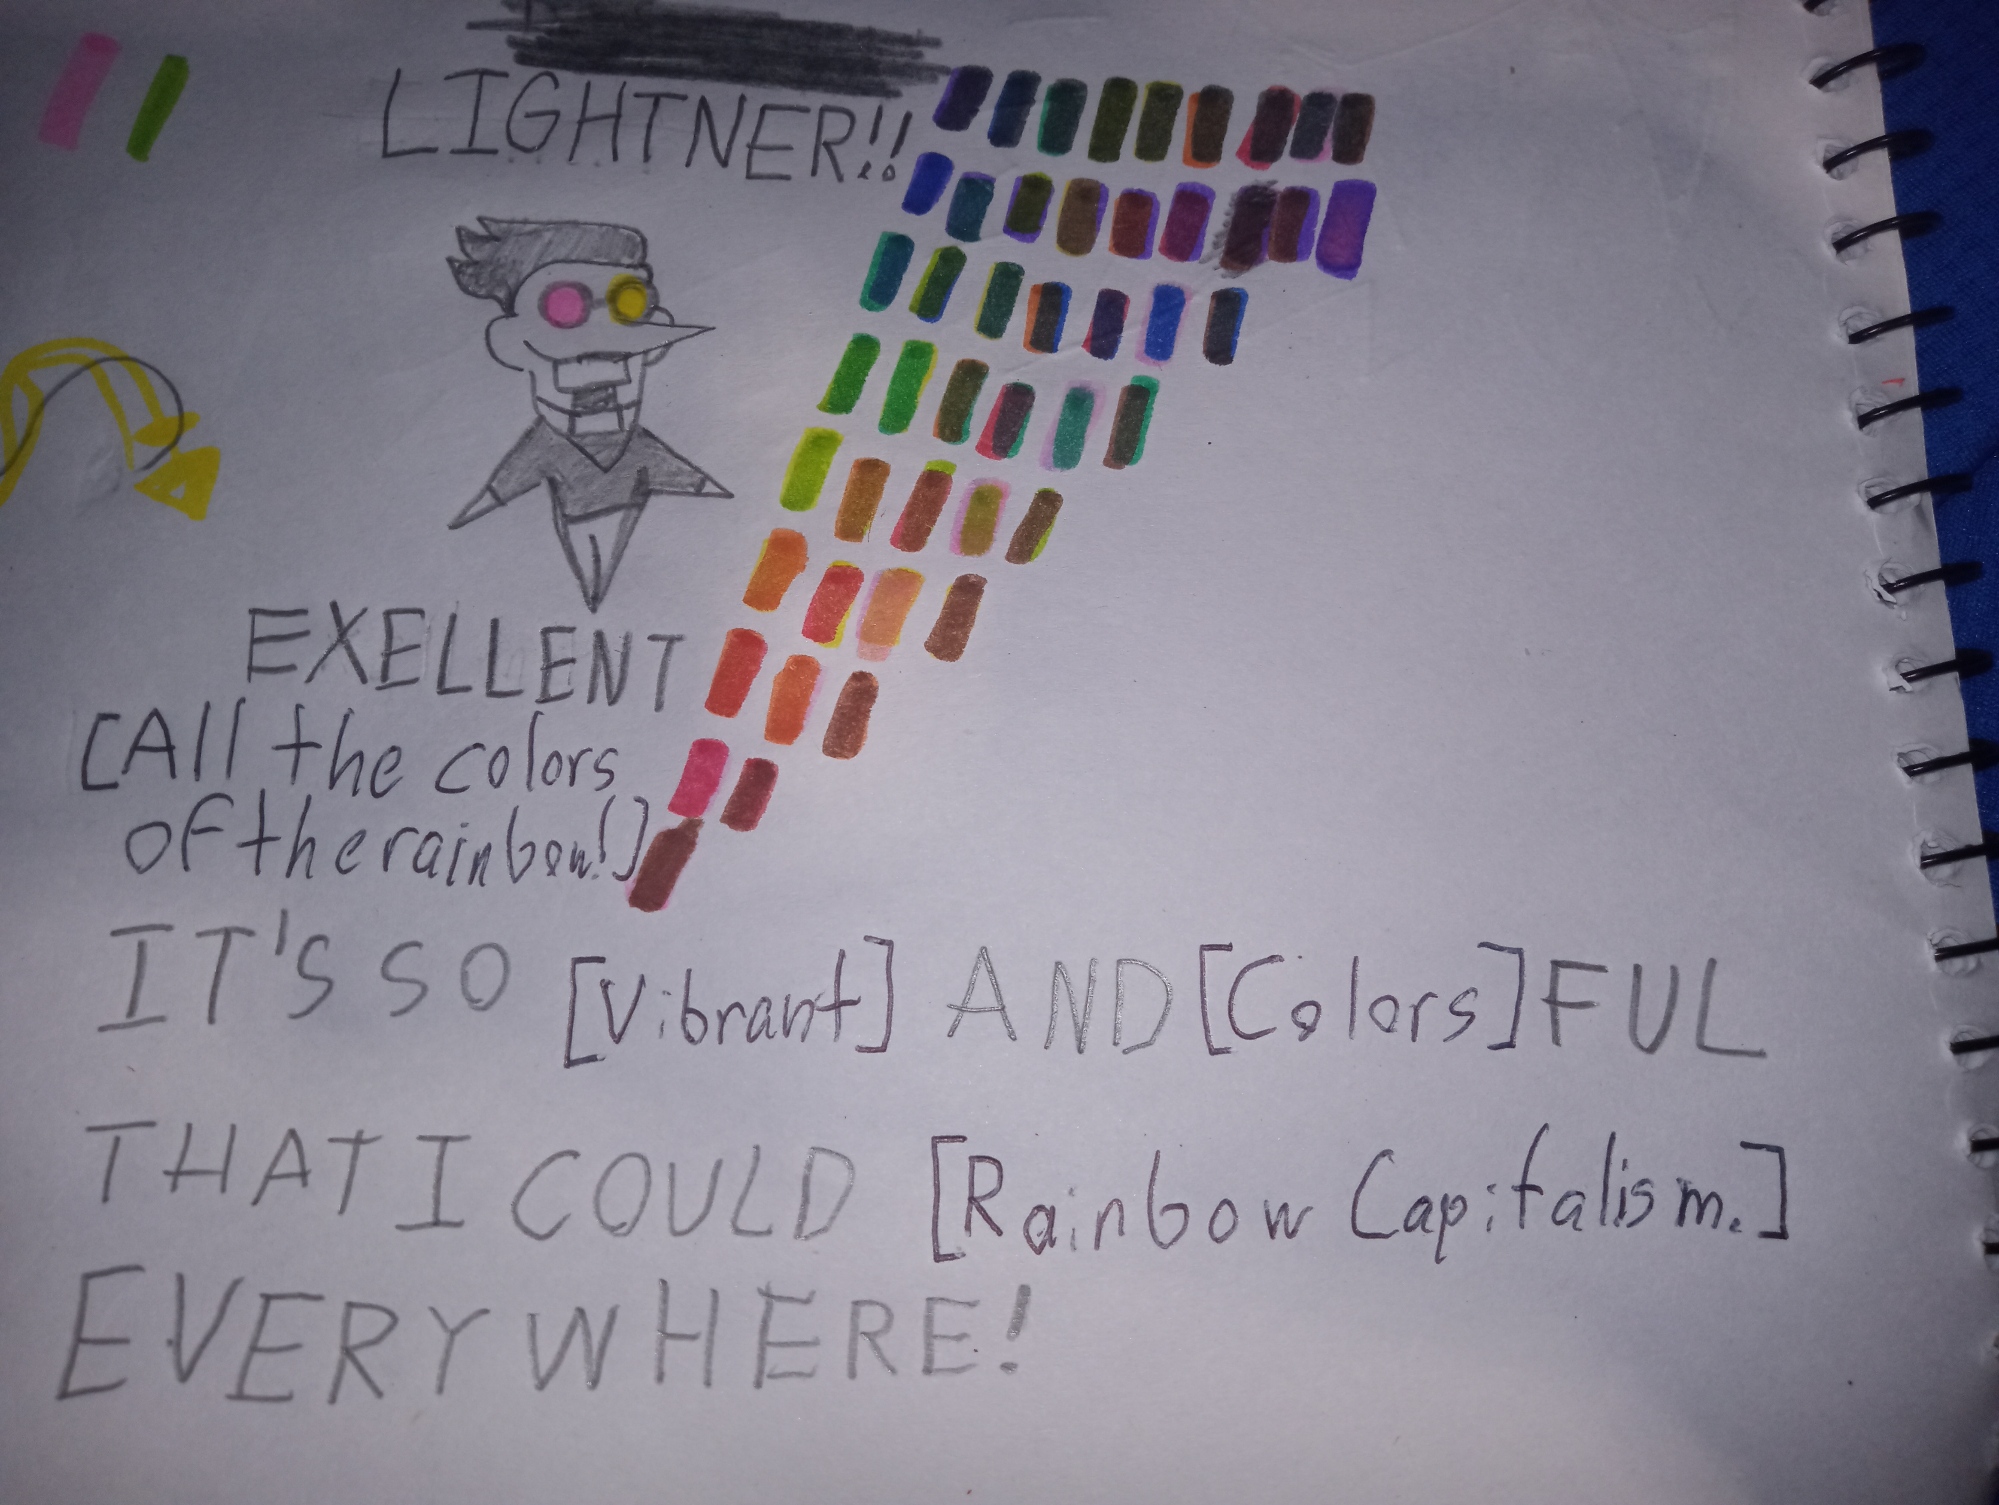 LIGHTNER!!
EXELLENT
[All the colors
of the rainbow!]
IT'S SO [Vibrant] AND [Colors]FUL
THAT I COULD [Rainbow Capitalism.]
EVERYWHERE!